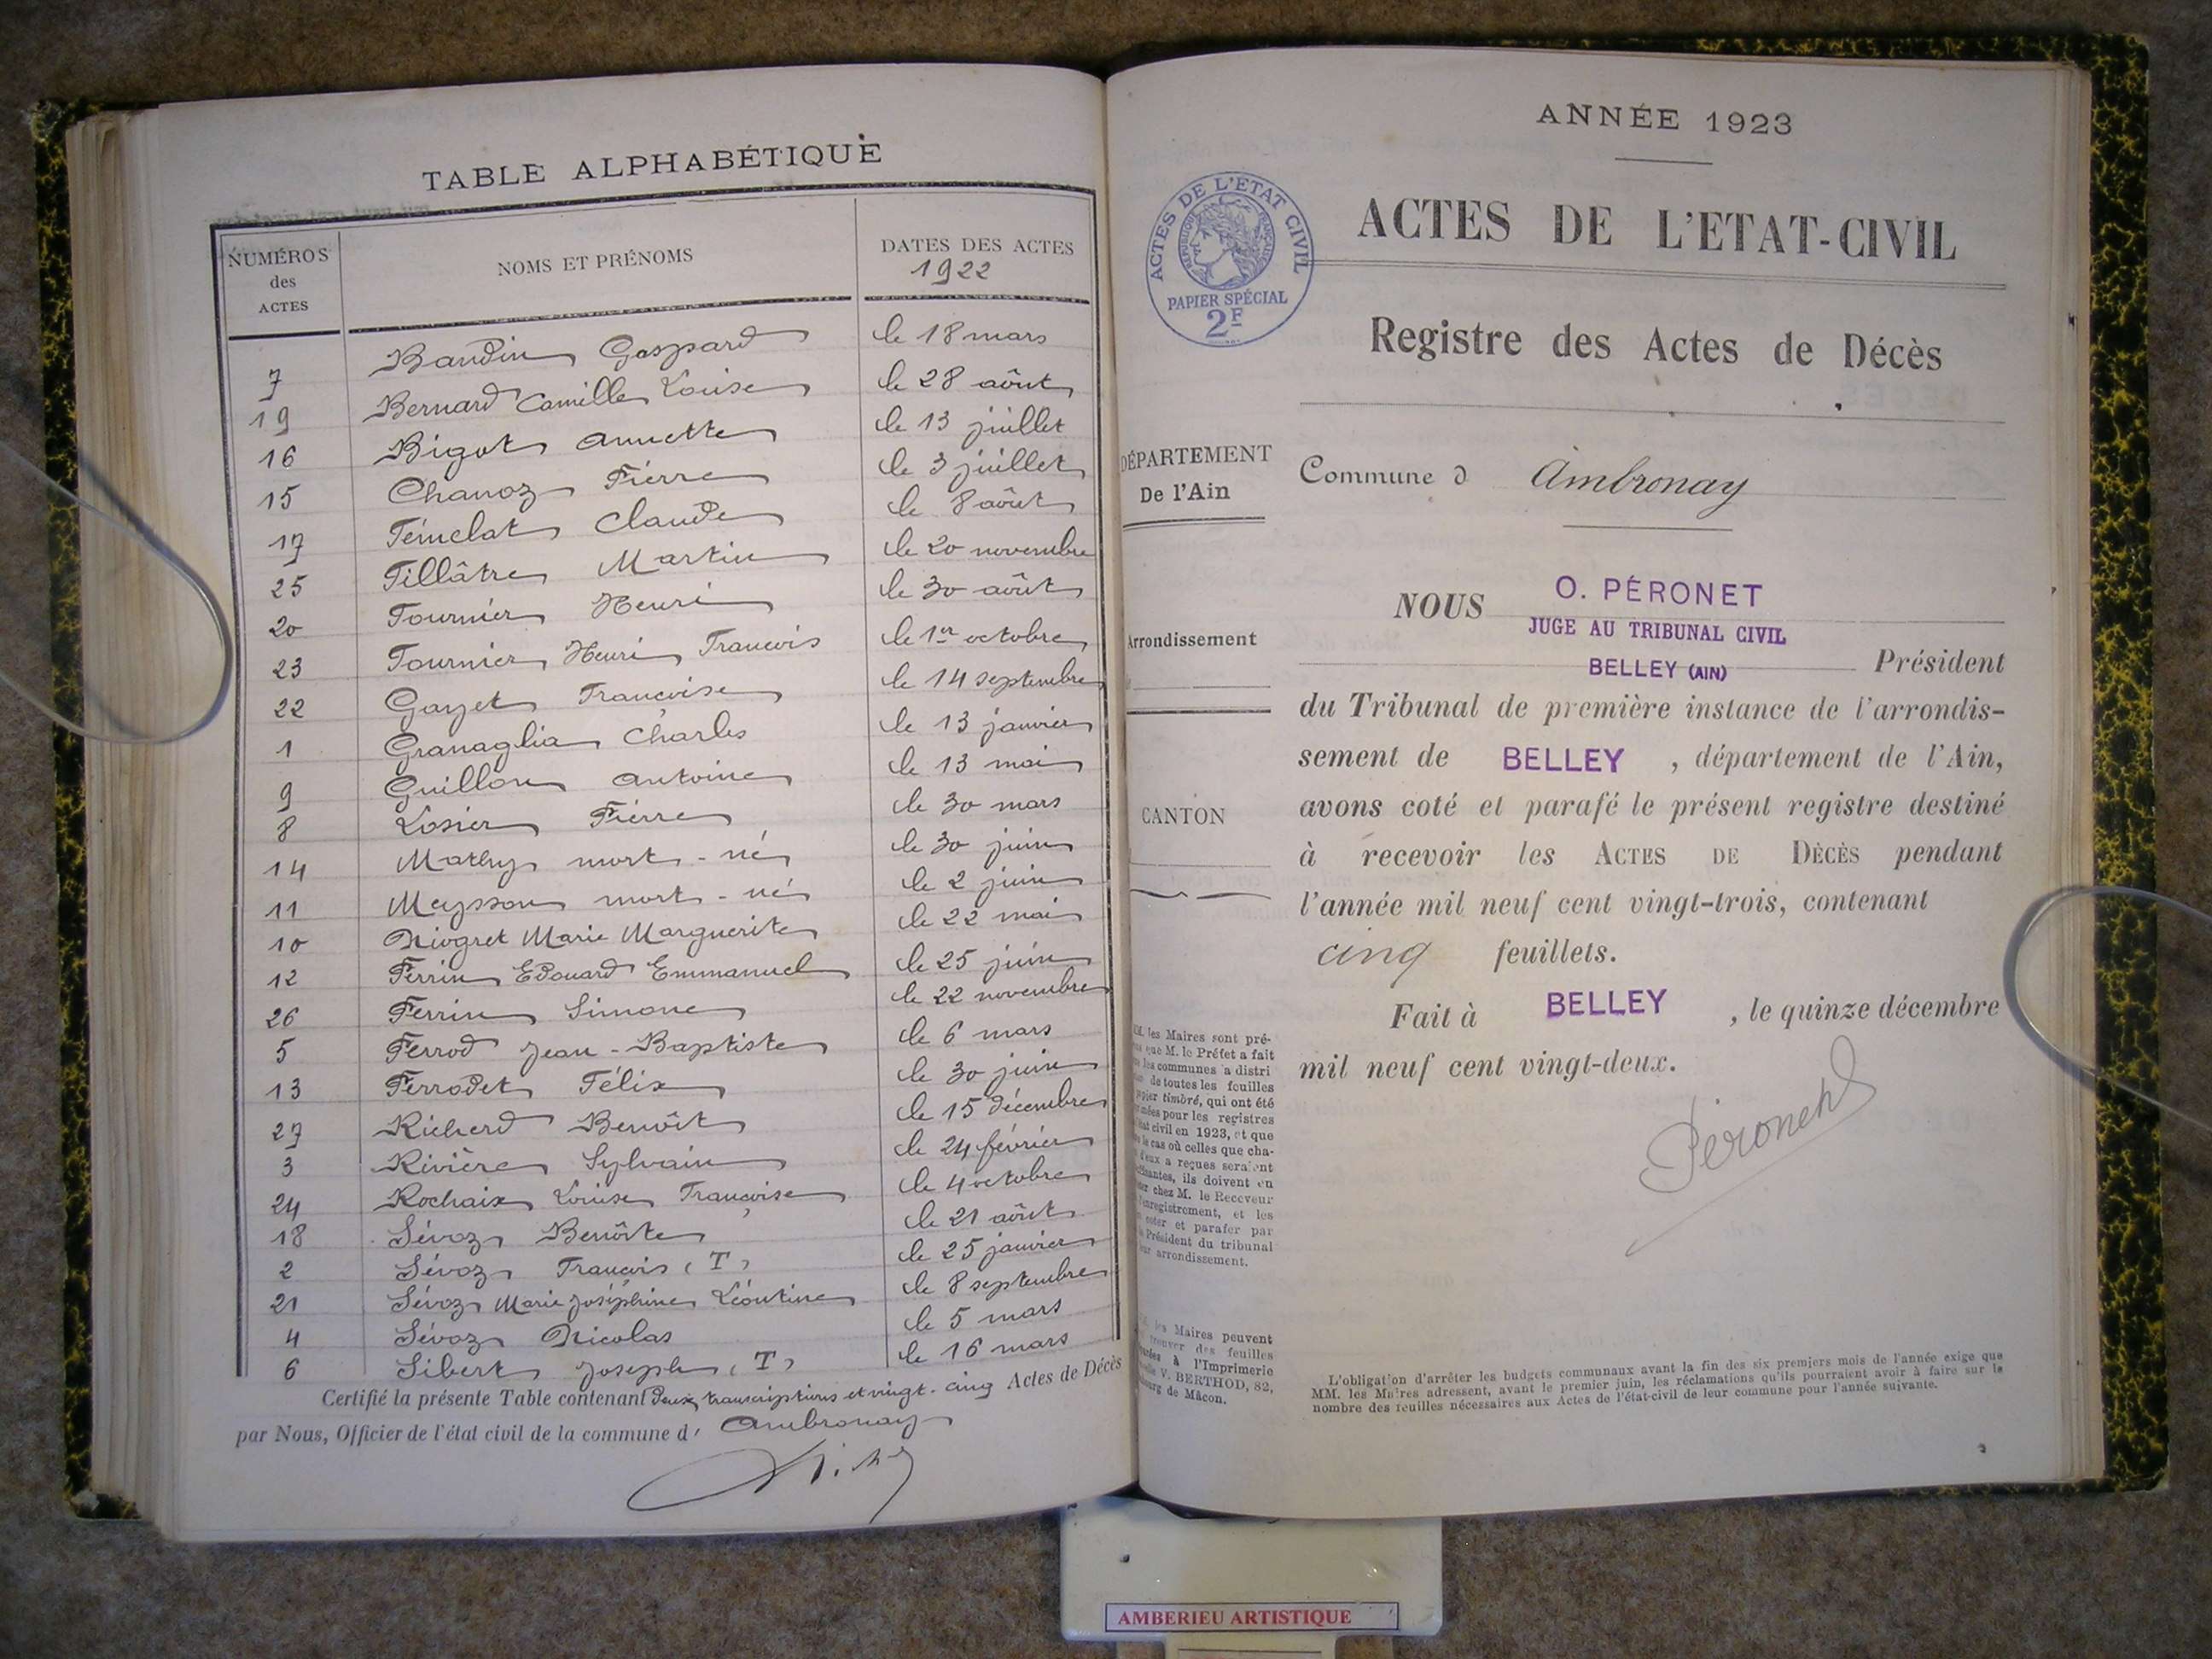 TABLE ALPHABÉTIQUE
NUMÉROS des ACTES NOMS ET PRÉNOMS DATES DES ACTES 1922
7 Baudin Gaspard le 18 mars
19 Bernard Camille Louise le 28 août
16 Bigot Annette le 13 juillet
15 Chanoz Pierre le 3 juillet
17 Fémelat Claude le 8 août
25 Fillâtre Martin le 20 novembre
20 Fournier Henri le 30 août
23 Fournier Henri François le 1er octobre
22 Gayet Françoise le 14 septembre
1 Granaglia Charles le 13 janvier
9 Guillon Antoine le 13 mai
8 Losier Pierre le 30 mars
14 Mathy mort-né le 30 juin
11 Meysson mort-né le 2 juin
10 Niogret Marie Marguerite le 22 mai
12 Perrin Edouard Emmanuel le 25 juin
26 Perrin Simone le 22 novembre
5 Perrod Jean-Baptiste le 6 mars
13 Perrodet Félix le 30 juin
27 Richerd Benoît le 15 décembre
3 Rivière Sylvain le 24 février
24 Rochaix Louise Françoise le 4 octobre
18 Sévoz Benoîte le 21 août
2 Sévoz François (T) le 25 janvier
21 Sévoz Marie Joséphine Léontine le 8 septembre
4 Sévoz Nicolas le 5 mars
6 Sibert Joseph (T) le 16 mars
Certifié la présente Table contenant deux transcriptions et vingt-cinq Actes de Décès
par Nous, Officier de l'état civil de la commune d' Ambronay
ANNÉE 1923
ACTES DE L'ETAT CIVIL
RÉPUBLIQUE FRANÇAISE
PAPIER SPÉCIAL
2F
ACTES DE L'ETAT-CIVIL
Registre des Actes de Décès
DÉPARTEMENT
De l'Ain
Commune d Ambronay
NOUS O. PÉRONET
JUGE AU TRIBUNAL CIVIL
Arrondissement
BELLEY (AIN) Président
du Tribunal de première instance de l'arrondis-
sement de BELLEY, département de l'Ain,
CANTON
avons coté et parafé le présent registre destiné
à recevoir les ACTES DE DÉCÈS pendant
l'année mil neuf cent vingt-trois, contenant
cinq feuillets.
Fait à BELLEY, le quinze décembre
mil neuf cent vingt-deux.
Péronet
MM. les Maires sont pré-
que M. le Préfet a fait
communes a distri
de toutes les feuilles
papier timbré, qui ont été
pour les registres
civil en 1923, et que
le cas où celles que cha-
d'eux a reçues seraient
ils doivent en
chez M. le Receveur
enregistrement, et les
coter et parafer par
Président du tribunal
arrondissement.
les Maires peuvent
trouver des feuilles
à l'Imprimerie
V. BERTHOD, 82,
de Mâcon.
L'obligation d'arrêter les budgets communaux avant la fin des six premiers mois de l'année exige que
MM. les Maires adressent, avant le premier juin, les réclamations qu'ils pourraient avoir à faire sur le
nombre des feuilles nécessaires aux Actes de l'état-civil de leur commune pour l'année suivante.
AMBERIEU ARTISTIQUE